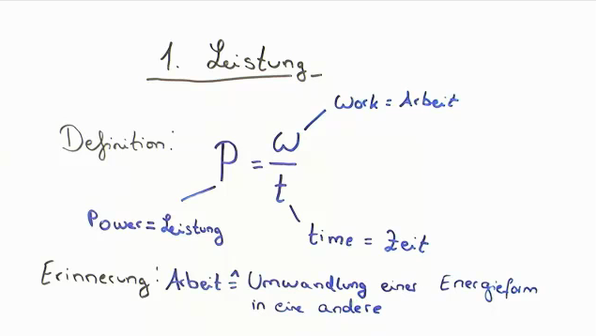 1. Leistung
work = Arbeit
Definition:
P = w/t
Power = Leistung
time = Zeit
Erinnerung: Arbeit ≙ Umwandlung einer Energieform
in eine andere